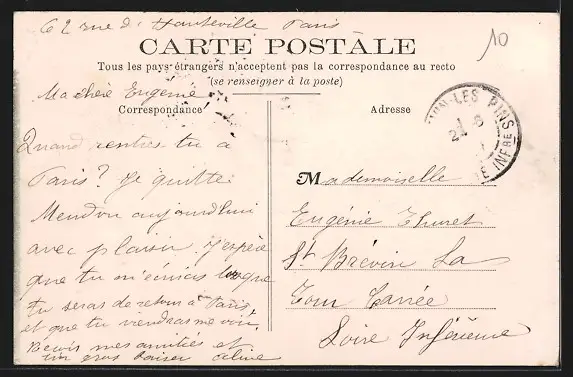 62 rue d' Hauteville Paris
10
CARTE POSTALE
Tous les pays étrangers n'acceptent pas la correspondance au recto
(se renseigner à la poste)
Ma chère Eugénie
Correspondance
Quand rentres tu à
Paris? Je quitte
Meudon aujourd'hui
avec plaisir. J'espère
que tu m'écriras lorsque
tu seras de retour à Paris
et que tu viendras me voir.
Reçois mes amitiés et
un gros baiser Céline
Adresse
LES PINS
LOIRE INFRE
Mademoiselle
Eugénie Thuret
St Brévin La
Tour Carrée
Loire Inférieure